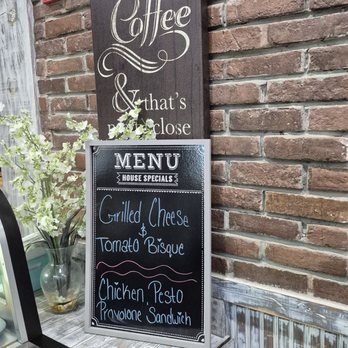 Coffee
& that's
close
MENU
HOUSE SPECIALS
Grilled Cheese
&
Tomato Bisque
Chicken, Pesto
Provolone Sandwich